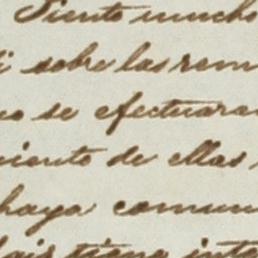 Siento mucho
i sobre las rem
no se efectuara
miento de ellas
haya comun
tiene inte